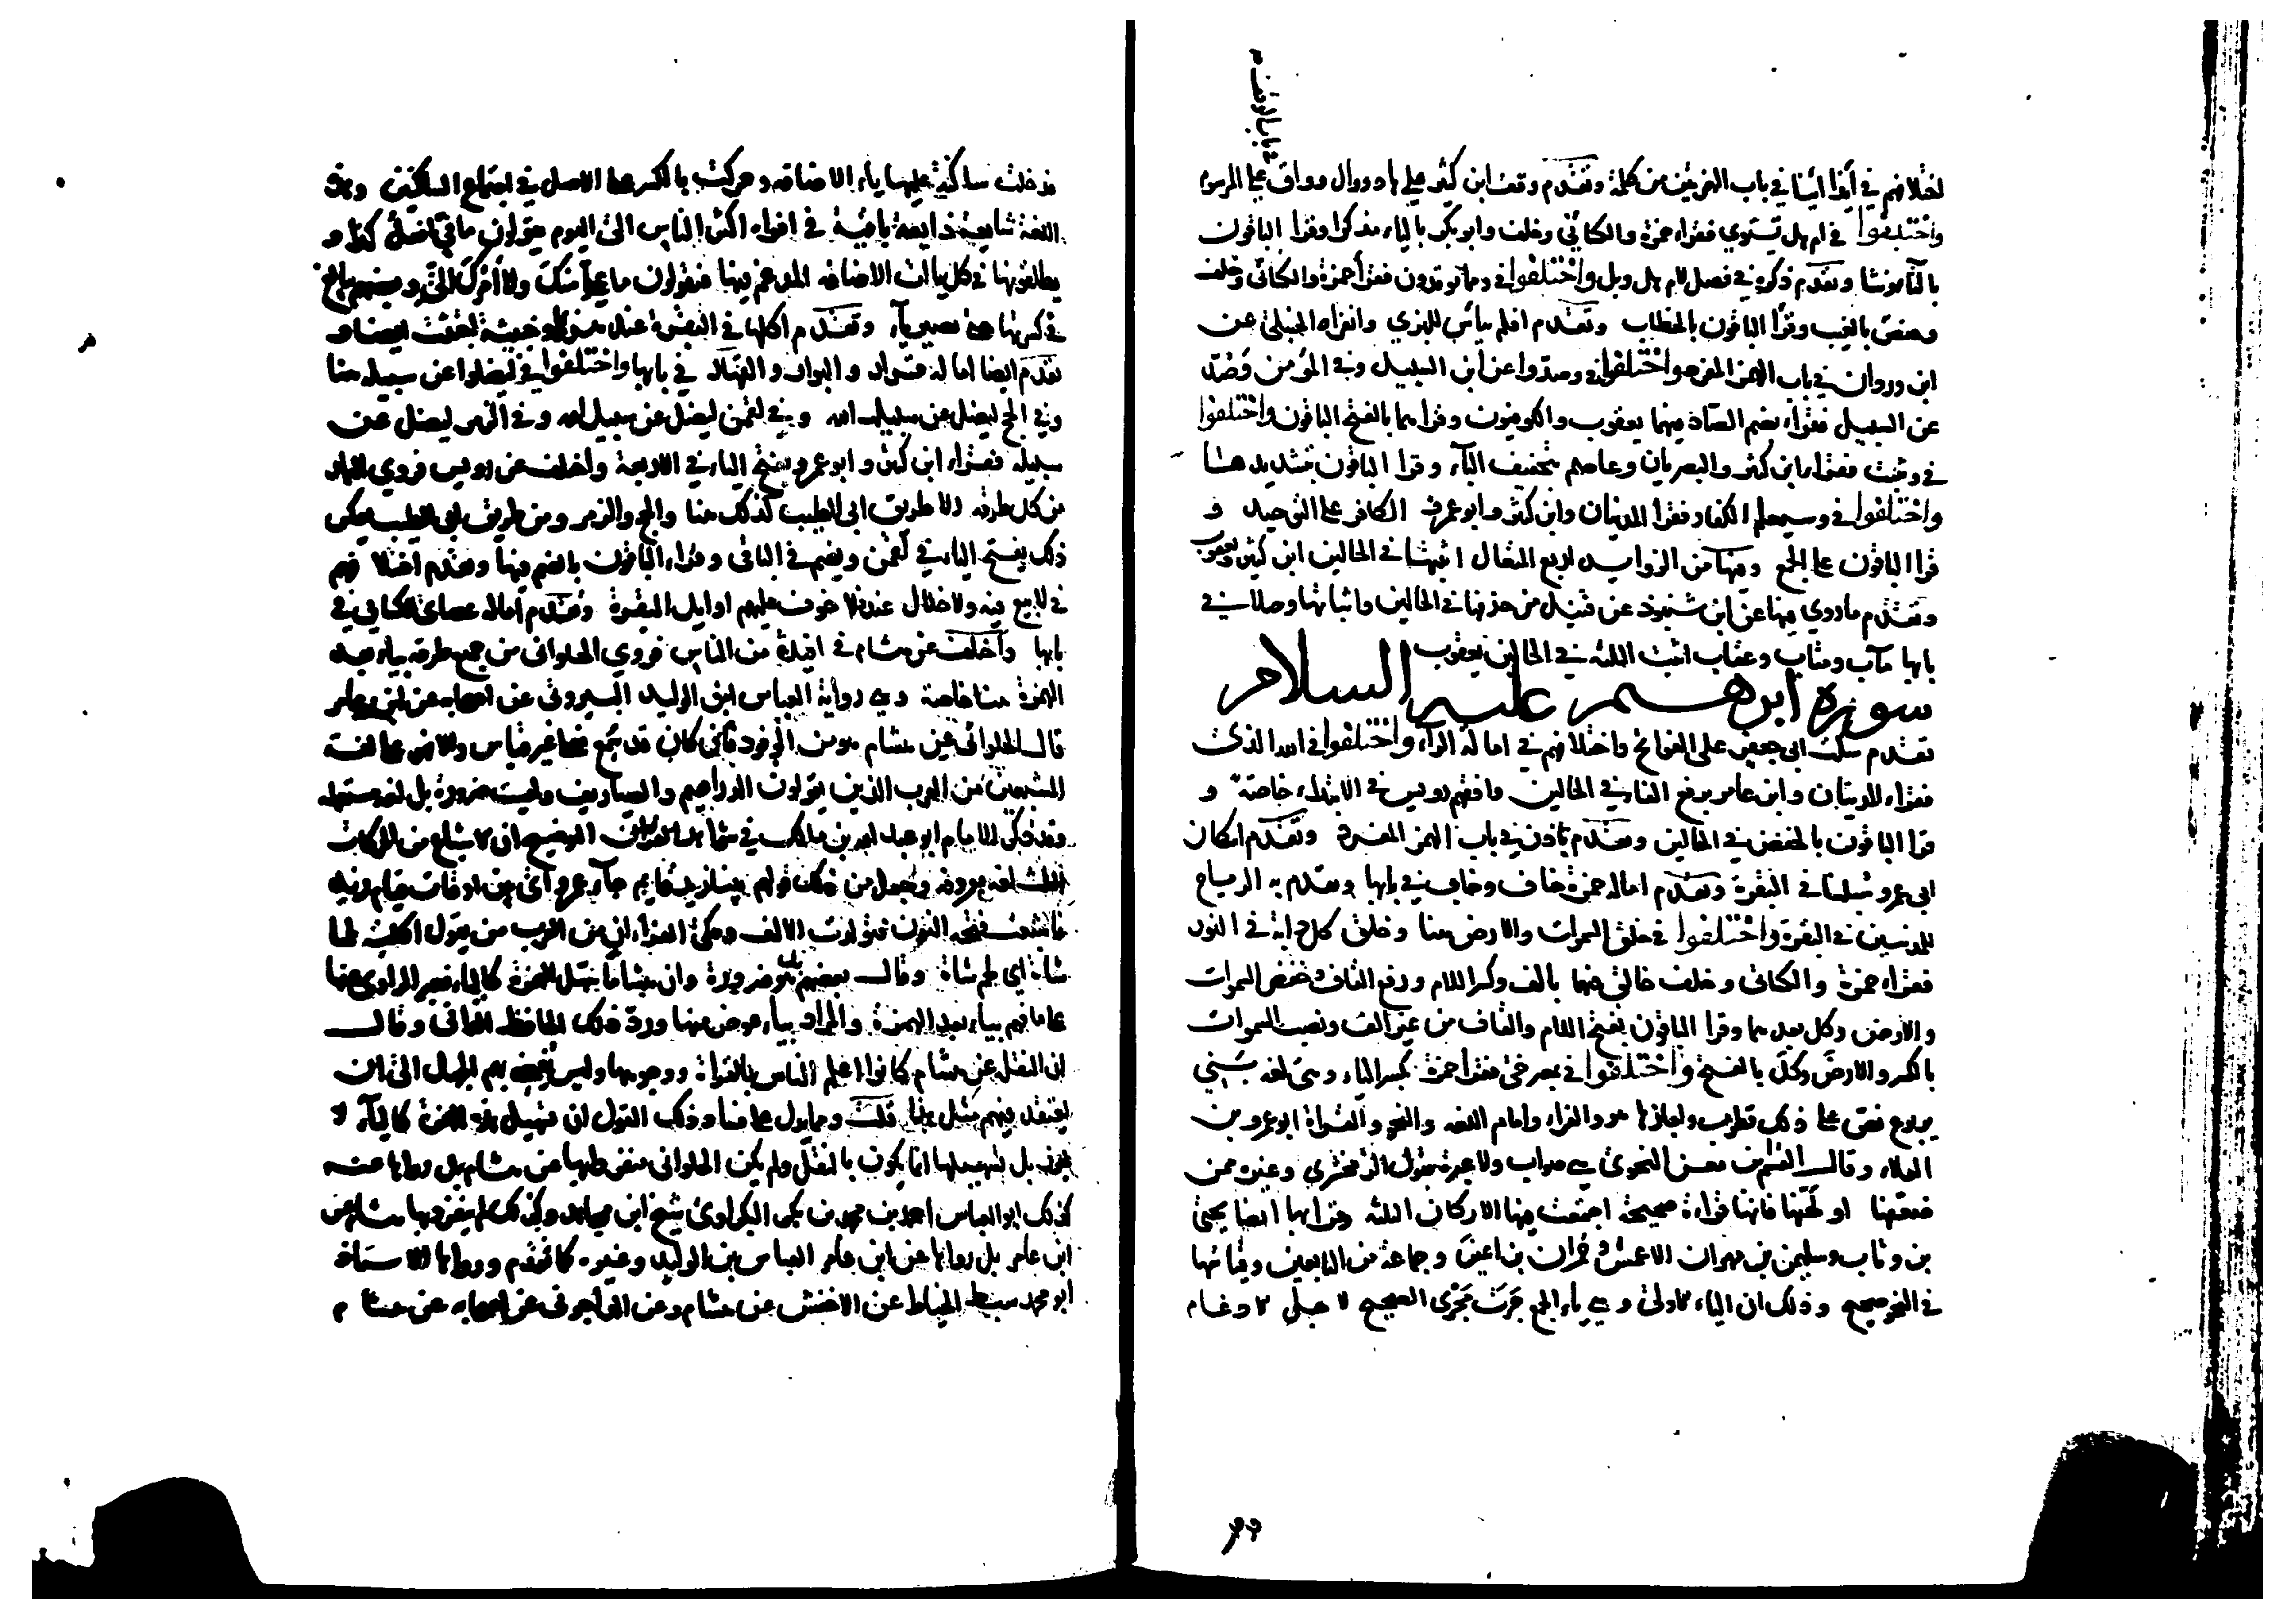 في باب الوقف
اختلافهم في أئذا أئنا في باب الهمزتين من كلمة وتقدم وقف ابن كثير علي هاد ووال وواق علي الرسوم
واختلفوا في ام هل تستوي فقراء حمزة والكسائي وخلف وابو بكر بالياء مذكرا وقرا الباقون
بالتاء مونثا وتقدم ذكره في فصل لام هل وبل واختلفوا في ومما توقدون فقرأ حمزة والكسائي وخلف
وحفص بالغيب وقرأ الباقون بالخطاب وتقدم افلم ييأس للبزي وانفراد الحنبلي عن
ابن وردان في باب الهمز المفرد واختلفوا في وصدوا عن ابن السبيل وفي المؤمن وصد
عن السبيل فقراء بضم الصاد فيهما يعقوب والكوفيون وقراهما بالفتح الباقون واختلفوا
في ويثبت فقراء ابن كثير والبصريان وعاصم بتخفيف الباء وقرا الباقون بتشديدها
واختلفوا في وسيعلم الكفار فقرا المدنيان وابن كثير وابو عمرو الكافر علي التوحيد و
قرا الباقون علي الجمع وفيها من الزوايد اربع المتعال اثبتها في الحالين ابن كثير ويعقوب
وتقدم ما روي فيها عن ابن شنبوذ عن قنبل من حذفها في الحالين واثباتها وصلا في
بابها مآب ومتاب وعقاب اثبت الثلثة في الحالين يعقوب
سورة ابرهيم عليه السلام
تقدم سكت ابي جعفر على الفواتح واختلافهم في امالة الراء واختلفوا في الله الذي
فقراء المدنيان وابن عامر برفع الهاء في الحالين وافقهم رويس في الابتداء خاصة و
قرا الباقون بالخفض في الحالين وتقدم تاذن في باب الهمز المفرد وتقدم اسكان
ابي عمرو سبلنا في البقرة وتقدم امالة حمزة خاف وخاب في بابها وتقدم به الرياح
للمدنيين في البقرة واختلفوا في خلق السموات والارض هنا وخلق كل دابة في النور
فقراء حمزة والكسائي وخلف خالق فيهما بالف وكسر اللام ورفع القاف وخفض السموات
والارض وكل بعدهما وقرا الباقون بفتح اللام والقاف من غير الف ونصب السموات
بالكسر والارض وكل بالفتح واختلفوا في بمصرخي فقرا حمزة بكسر الياء وهي لغة بني
يربوع نص علي ذلك قطرب واجازها هو والفراء وامام اللغة والنحو والقراة ابو عمرو بن
العلاء وقال القسم بن معن النحوي هي صواب ولا عبرة بقول الزمخشري وغيره ممن
ضعفها او لحنها فانها قراءة صحيحة اجتمعت فيها الاركان الثلثة وقرا بها ايضا يحيى
بن وثاب وسليمن بن مهران الاعمش وحمران بن اعين وجماعة من التابعين وقياسها
في النحو صحيح وذلك ان الياء الاولي وهي ياء الجمع جرت مجرى الصحيح لاجل الادغام
فدخلت ساكنة عليها ياء الاضافة وحركت بالكسر علي الاصل في اجتماع الساكنين وهذه
اللغة شايعة ذايعة باقية في افواه اكثر الناس الى اليوم يقولون ما في افعل كذا و
يطلقونها في كل ياات الاضافة المدغم فيها فيقولون ما علي منك ولا امرك الي ومنهم يبالغ
في كسرتها حتى تصير ياء وتقدم اكلها في البقرة عند هزوا وخبيثة اجتثت ايضا و
تقدم ايضا امالة قرار والبوار والقهار في بابها واختلفوا في ليضلوا عن سبيله هنا
وفي الحج ليضل عن سبيل الله وفي لقمن ليضل عن سبيل الله وفي الزمر ليضل عن
سبيله فقراء ابن كثير وابو عمرو بفتح الياء في الاربعة واختلف عن رويس فروي التمار
من كل طرقه الا طريق ابي الطيب كذلك هنا والحج والزمر ومن طريق ابي الطيب بعكس
ذلك بفتح الياء في لقمن وبضم في الباقي وقراء الباقون بالضم فيها وتقدم اختلافهم
في لا بيع فيه ولا خلال عند لا خوف عليهم اوايل البقرة وتقدم امالة عصاني للكسائي في
بابها واختلف عن هشام في افيدة من الناس فروي الحلواني من جميع طرقه بياء بعد
الهمزة هنا خاصة وهي رواية العباس ابن الوليد البيروتي عن اصحابه عن ابن عامر
قال الحلواني عن هشام هو من الوفود فأن كان قد سمع فعلى غير قياس والا فهو علي لغة
المشبعين من العرب الذين يقولون الدراهيم والصياريف وليست ضرورة بل لغة مستعملة
وقد ذكر الامام ابو عبد الله بن مالك في شواهد التوضيح ان الاشباع من الحركات
الثلث لغة معروفة وجعل من ذلك قولهم بينا زيد قايم جاء عمرو اي بين اوقات قيام زيد
فاشبعت فتحة النون فتولدت الالف وحكي الفراء ان من العرب من يقول اكلت لحما
شاة اي لحم شاة وقال بعضهم بل هو ضرورة وان هشاما سهل الهمزة كالياء فعبر الراوي عنها
علي ما فهم بياء بعد الهمزة والمراد بياء عوض منها ورد ذلك الحافظ الداني وقال
ان النقلة عن هشام كانوا اعلم الناس بالقراة ووجوهها وليس يفضي بهم الجهل الى ان
يعتقد فيهم مثل هذا قلت ومما يدل علي فساد ذلك القول ان تسهيل هذه الهمزة كالياء لا
يجوز بل تسهيلها انما يكون بالنقل ولم يكن الحلواني منفردا بها عن هشام بل رواها عنه
كذلك ابو العباس احمد بن محمد بن بكر البكراوي شيخ ابن مجاهد وكذلك لم ينفرد بها هشام عن
ابن عامر بل رواها عن ابن عامر العباس بن الوليد وغيره كما تقدم ورواها الاستاذ
ابو محمد سبط الخياط عن الاخفش عن هشام وعن الداجوني عن اصحابه عن هشام